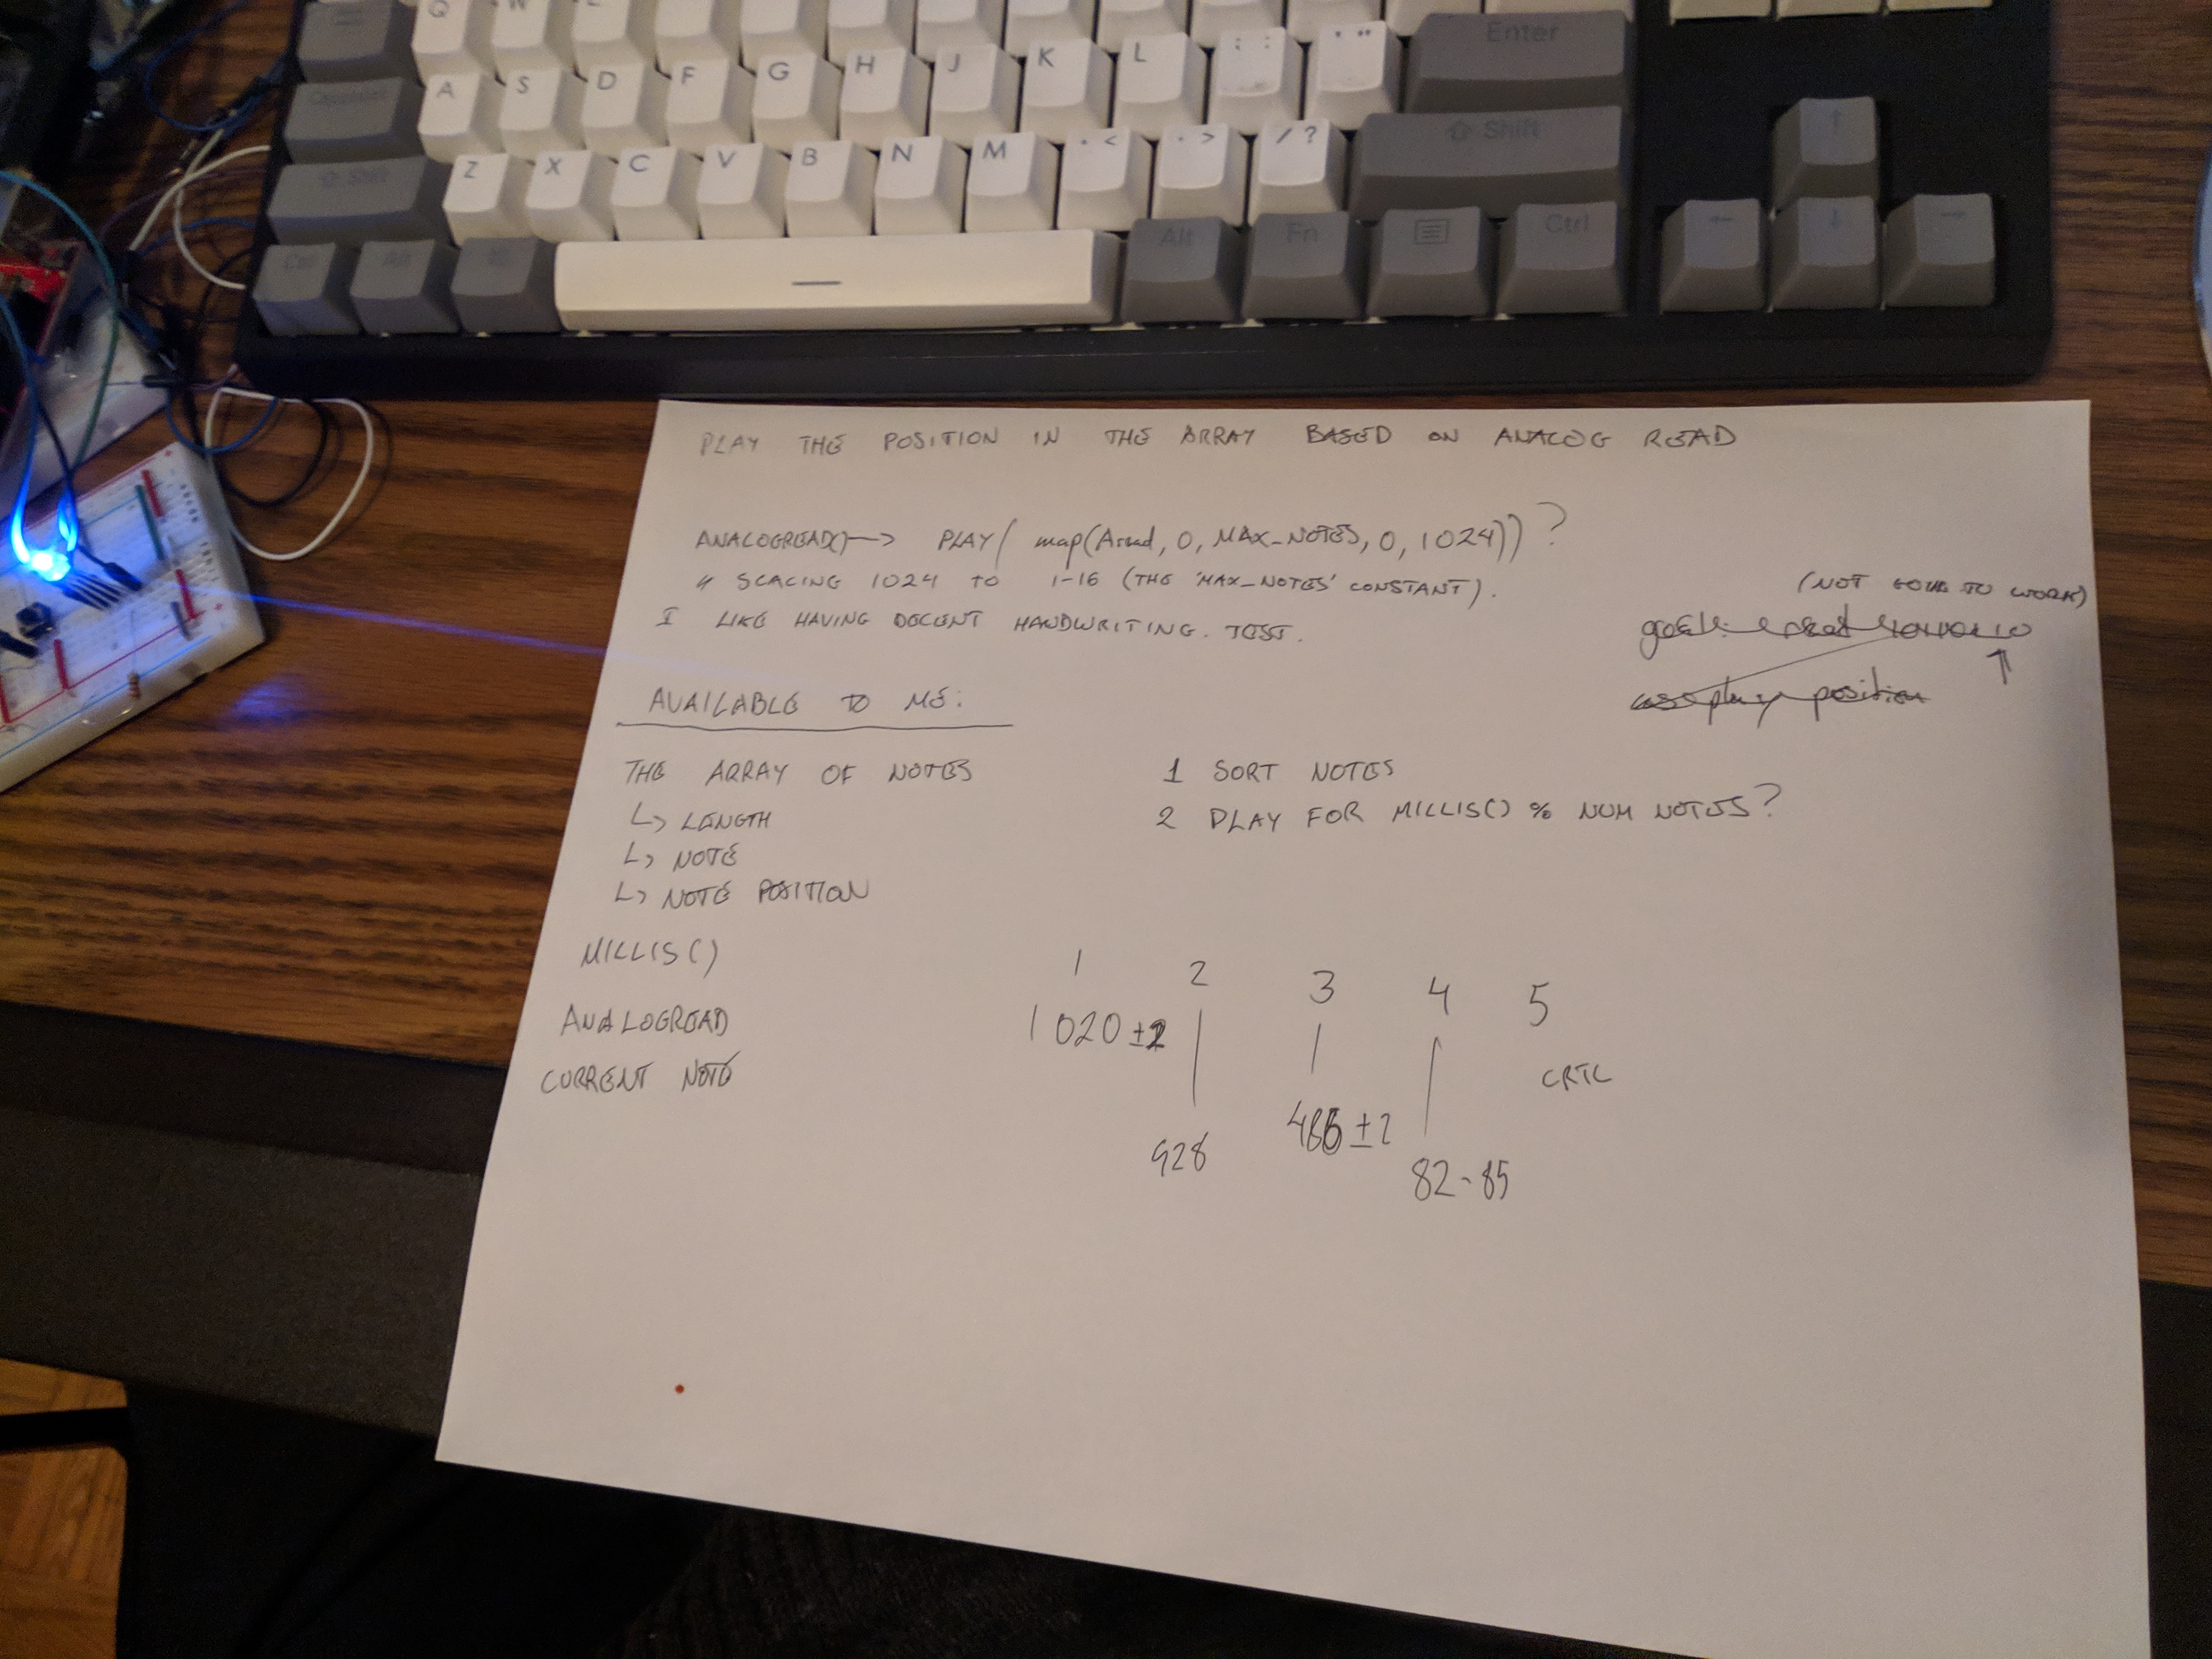 Q W E
A S D F G H J K L ; : ' " Enter
Shift Z X C V B N M , < . > / ? Shift
Ctrl Alt Alt Fn Ctrl
PLAY THE POSITION IN THE ARRAY BASED ON ANALOG READ
ANALOGREAD()—> PLAY( map(Aread, 0, MAX_NOTES, 0, 1024)) ?
SCALING 1024 TO 1-16 (THE 'MAX_NOTES' CONSTANT).
I LIKE HAVING DECENT HANDWRITING. TEST.
(NOT GOING TO WORK)
goal:
play position
AVAILABLE TO ME:
THE ARRAY OF NOTES
↳ LENGTH
↳ NOTE
↳ NOTE POSITION
MILLIS()
ANALOGREAD
CURRENT NOTE
1 SORT NOTES
2 PLAY FOR MILLIS() % NUM NOTES?
1 2 3 4 5
1020 ±2
928
486 ±2
82-85
CRTL